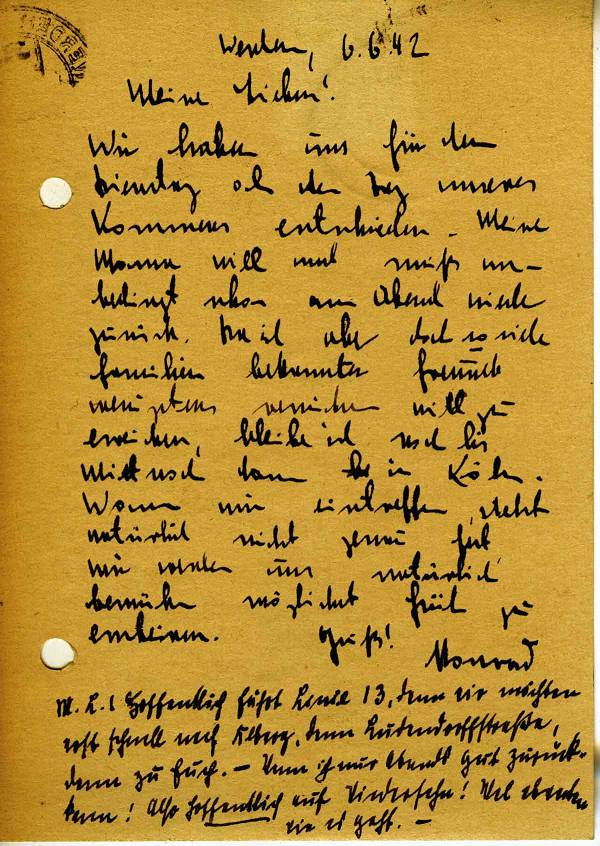 Werden, 6.6.42
Meine Lieben!
Wir haben uns für den
Dienstag als den Tag unseres
Kommens entschieden. Meine
Mama will und muß un-
bedingt schon am Abend wieder
zurück. Da ich aber doch so viele
Familien bekannter Freunde
wenigstens versuchen will zu
erreichen, bleibe ich noch bis
Mittwoch dann in Köln.
Wann wir eintreffen, steht
natürlich nicht genau fest,
wir werden uns natürlich
bemühen möglichst früh zu
erscheinen. Gruß!
Konrad
M. L.! Hoffentlich fährt Linie 13, denn wir möchten
erst schnell nach, dann Ludendorffstraße,
dann zu Euch. — Wenn ich nur abends gut zurück-
kann! Also hoffentlich auf Wiedersehn!
wie es geht. —